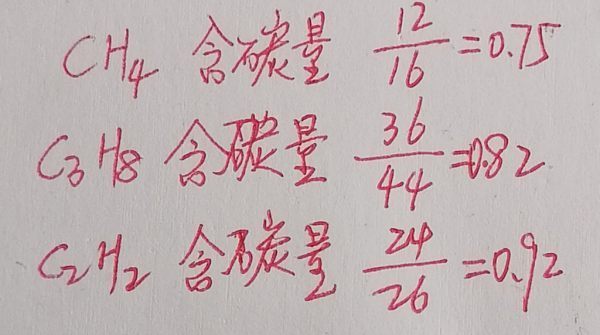 CH₄ 含碳量 12/16=0.75
C₃H₈ 含碳量 36/44=0.82
C₂H₂ 含碳量 24/26=0.92